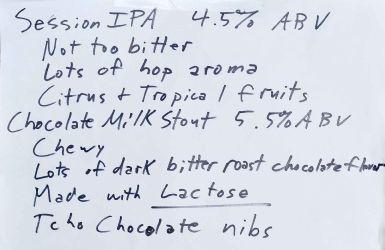 Session IPA 4.5% ABV
Not too bitter
Lots of hop aroma
Citrus + Tropical fruits
Chocolate Milk Stout 5.5% ABV
Chewy
Lots of dark bitter roast chocolate flavor
Made with Lactose
Tcho Chocolate nibs